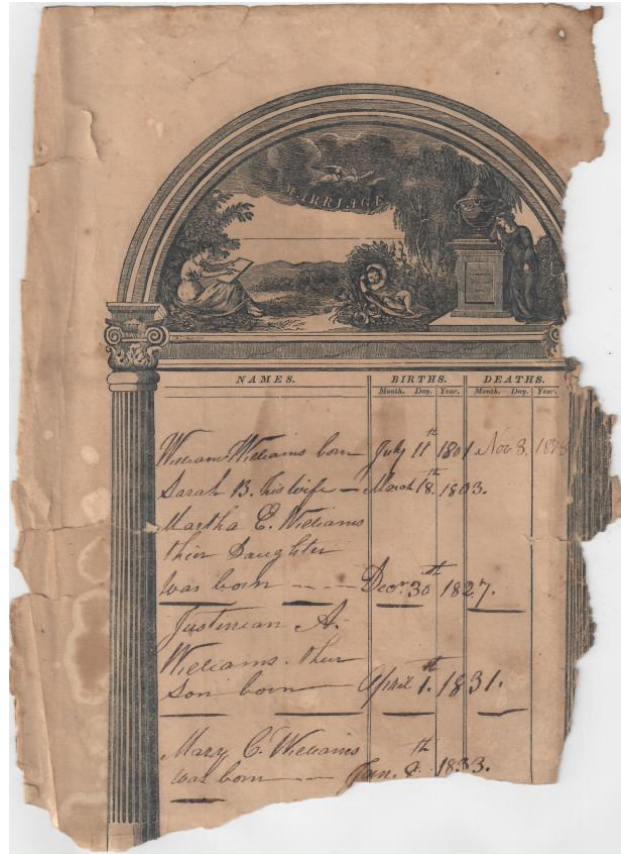 MARRIAGE
NAMES. BIRTHS. DEATHS.
Month. Day. Year. Month. Day. Year.
William Williams born July 11th 1801. Nov 3, 
Sarah B. his wife — March 18th 1803.
Martha E. Williams
their Daughter
was born — — — Decr. 30th 1827.
Justinian A.
Williams. their
Son born — April 1.th 1831.
Mary C. Williams
was born — — — Jan. th 1833.